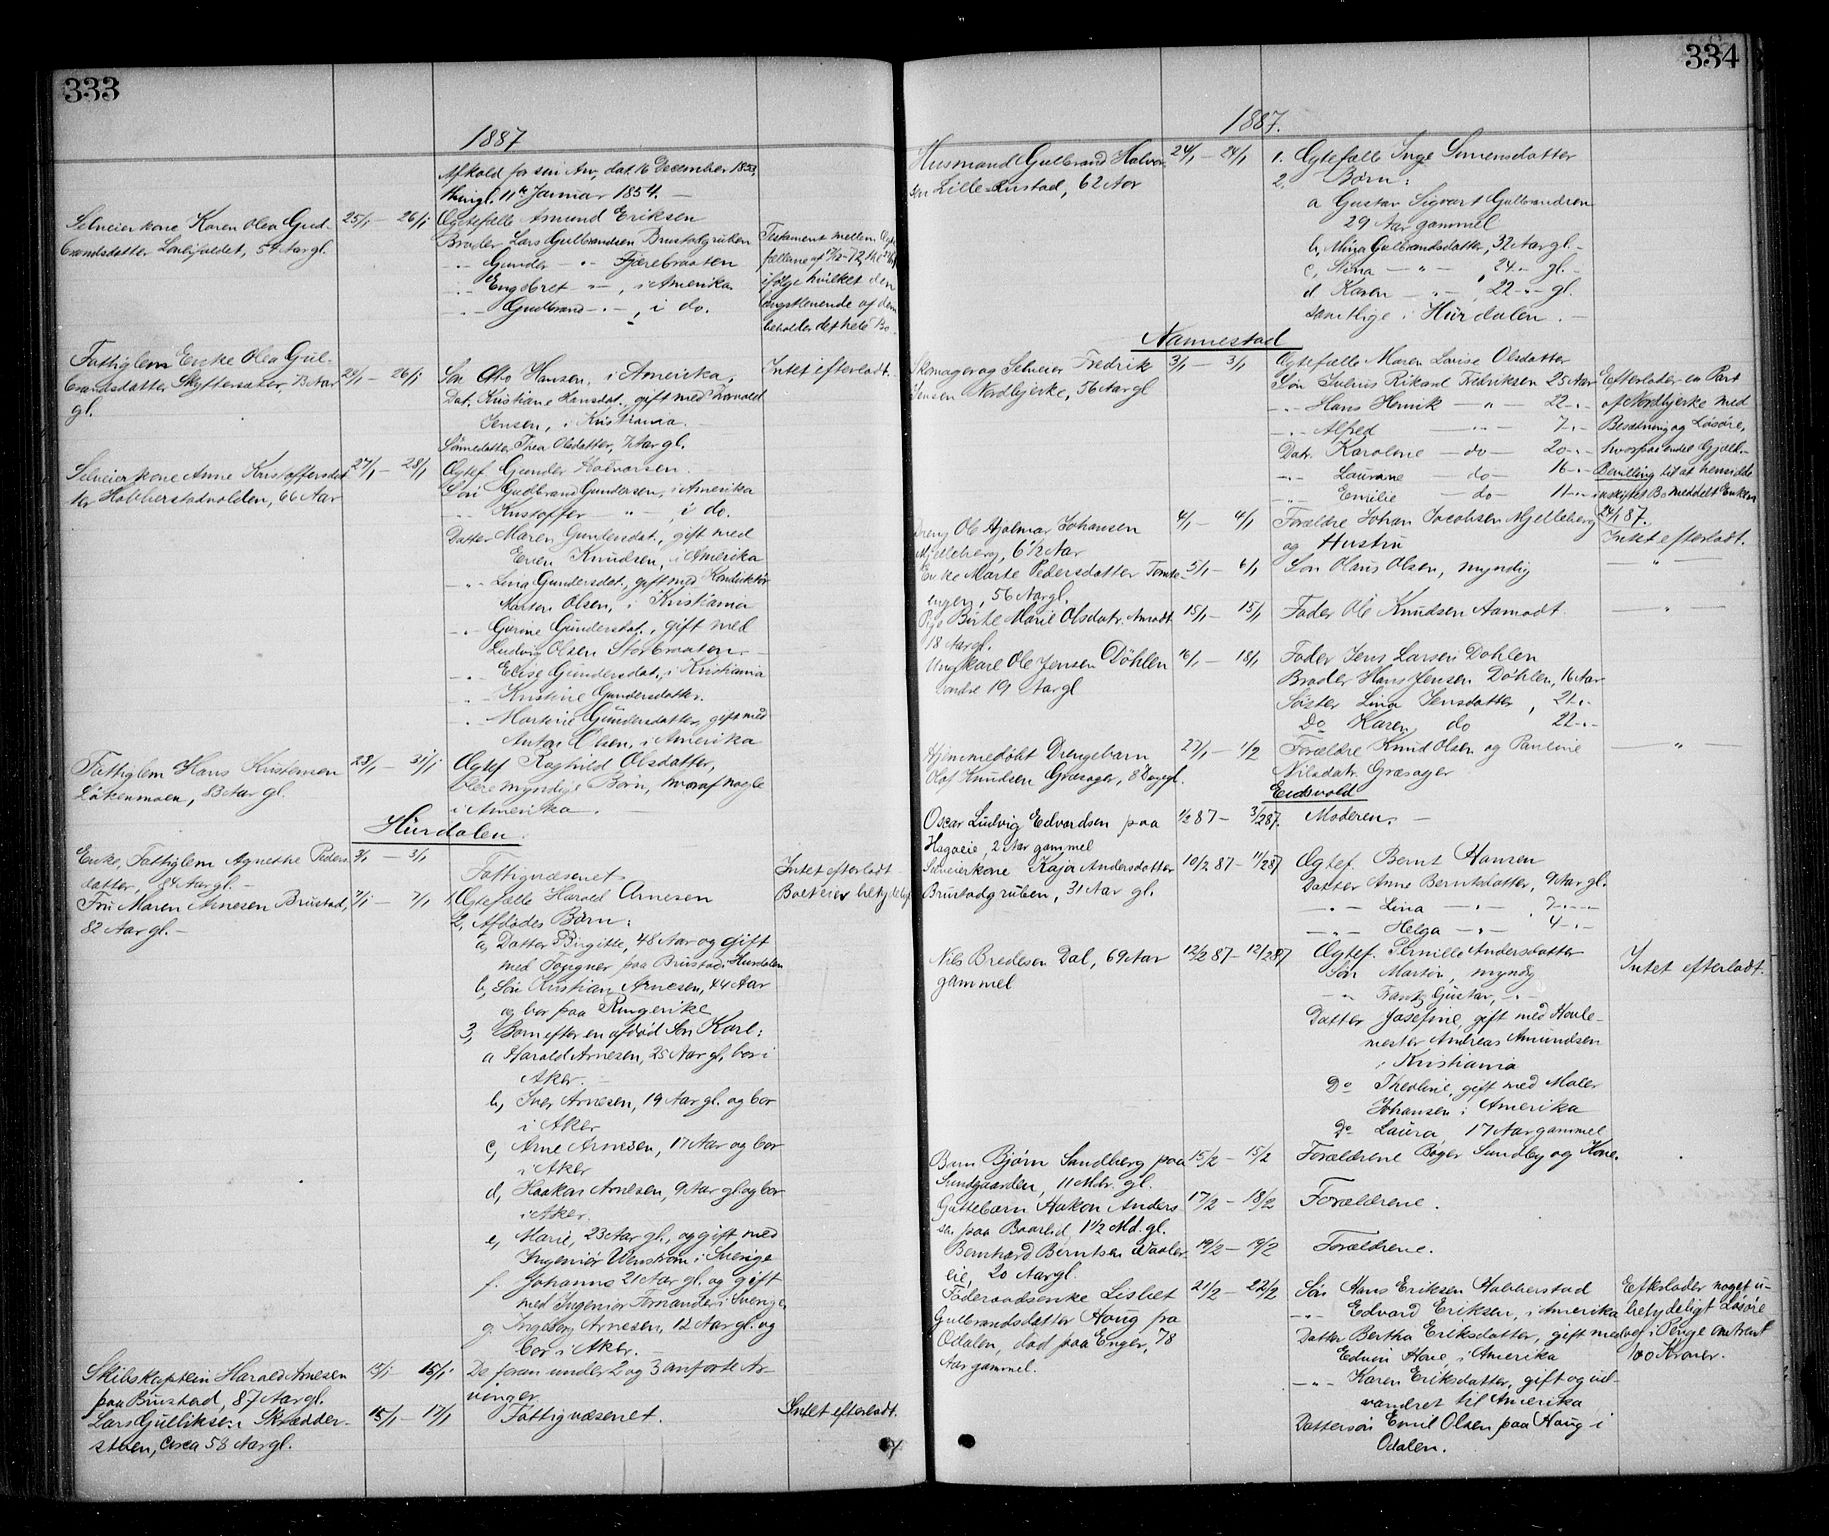 333
1887
Afkald for sin Arv, dat. 16 December 1853,
thingl. 11te Januar 1854. —
Selveierkone Karen Olea Gud-
brandsdatter, 54 Aar gl.
25/1 — 26/1
Ægtefælle Amund Eriksen
Broder Lars Gulbrandsen Brustadgruben
-"- Gunder -"- Fjærebraaten
-"- Engebret -"-, i Amerika
-"- Gudbrand -"-, i do.
Testament mellem Ægte-
fællerne af
ifølge hvilket den
længstlevende af dem
beholder det hele Bo -
Fattiglem Enke Olea Gul-
brandsdatter Skyttersæter, Aar
gl.
— 26/1
Søn Otto Hansen, i Amerika,
Dat. Kristiane Hansdat., gift med Thorvald
Jensen, i Kristiania.
Sønnedatter Thea Olsdatter, 7 Aar gl.
Intet efterladt.
Selveierkone Anne Kristoffersdat-
ter Habberstadvolden, 66 Aar
27/1 — 28/1
Ægtef. Gunder Halvorsen.
Søn Gudbrand Gundersen, i Amerika
-"- Kristoffer -"-, i do.
Datter Maren Gundersdat., gift med
Even Knudsen, i Amerika
-"- Lina Gundersdat., gift med Konduktør
Martin Olsen, i Kristiania
-"- Gurine Gundersdat., gift med
Ludvig Olsen Storbraaten
-"- Elise Gundersdat., i Kristiania
-"- Kristine Gundersdatter.
-"- Martine Gundersdatter, gift med
Anton Olsen, i Amerika
Fattiglem Hans Kristensen
Løkenmoen, 83 Aar gl.
23/1 — 31/1
Ægtef. Ragnhild Olsdatter,
flere myndige Børn, hvoraf nogle
i Amerika.
Hurdalen.
Enke, Fattiglem Agnethe Peders-
datter, 84 Aar gl. —
— 3/1
Fattigvæsenet
Intet efterladt
Fru Maren Arnesen Brustad,
82 Aar gl. —
7/1 — 7/1
1. Ægtefælle Harald Arnesen
Boet eier betydelig
2, Afdødes Børn:
a, Datter Birgitte, 48 Aar og gift
med Fougner paa Brustad i Hurdalen
b, Søn Kristian Arnesen, 44 Aar
og bor paa Ringerike
3, Børn efter en afdød Søn Karl:
a Harald Arnesen, 25 Aar gl., bor i
Aker.
b, Iver Arnesen, 19 Aar gl. og bor
i Aker
c, Arne Arnesen, 17 Aar og bor
i Aker
d, Haakon Arnesen, 9 Aar gl. og bor
i Aker.
e, Marie, 23 Aar gl., og gift med
Ingeniør Wenstrøm i Sverige
f. Johanne 21 Aar gl. og gift
med Ingeniør Fernander i Sverige
g. Ingeborg Arnesen, 12 Aar gl. og
bor i Aker.
Skibskaptein Harald Arnesen
paa Brustad, 87 Aar gl.
— 15/1
De foran under 2 og 3 anførte Ar-
vinger
Lars Gulliksen Skrædder-
stuen, circa 58 Aar gl.
15/1 — 17/1
Fattigvæsenet.
Intet efterladt.
334
1887.
Husmand Gulbrand Halvor-
sen Lille-Rustad, 62 Aar
24/1 — 24/1
1. Ægtefælle Inge Simensdatter
2, Børn:
a Gustav Sigvart Gulbrandsen
29 Aar gammel
b, Mina Gulbrandsdatter, 32 Aar gl. -
c, Stina -"-, 24 -"- gl. -
d. Karen -"-, 22 -"- gl.
samtlige i Hurdalen. —
Nannestad
Skomager og Selveier Fredrik
Jensen Nordbjerke, 56 Aar gl
3/1 — 3/1
Ægtefælle Maren Lovise Olsdatter
Søn Julius Rikard Fredriksen 25 Aar
-"- Hans Henrik -"- 22 -"-
-"- Alfred -"- 7 -"-
Datr. Karolene - do - 20 -"-
-"- Laurane - do - 16 -"-
-"- Emilie - do - 11 -"-
Efterlader en Part
af Nordbjerke med
Besætning og Løsøre,
hvorpaa endel Gjæld. -
Bevilling til at hensidde
i uskiftet Bo meddelt Enken
24/1 87.
Dreng Ole Hjalmar Johansen
Mjelleberg, 6 1/2 Aar
4/1 — 4/1
Forældre Johan Jacobsen Mjelleberg
og Hustru
Intet efterladt.
Enke Marte Pedersdatter Tomte-
enger, 56 Aar gl.
5/1 — 6/1
Søn Olaus Olsen, myndig
— " —
Pige Birte Marie Olsdatr. Amodt
18 Aar gl.
15/1 — 15/1
Fader Ole Knudsen Aamodt.
— " —
Ungkarl Ole Jensen Döhlen
søndre 19 Aar gl
16/1 — 18/1
Fader Jens Larsen Dohlen
Broder Hans Jensen Döhlen, 16 Aar
Søster Lina Jensdatter, 21 -"-
Do Karen do 22 -"-
Hjemmedøbt Drengebarn
Olaf Knudsen Græsager, 8 Dage gl.
27/1 — 1/2
Forældre Knud Olsen og Pauline
Nilsdatr. Græsager
— " —
Eidsvold
Oscar Ludvig Edvardsen paa
Hagaeie, 2 Aar gammel
1/2 87 — 3/2 87.
Moderen. —
Selveierkone Kaja Andersdatter
Brustadgruben, 31 Aar gl.
10/2 87 — 11/2 87
Ægtef. Bernt Hansen
Datter Anne Berntsdatter, 9 Aar gl.
-"- Lina -"-, 7 -"-
-"- Helga -"- 4 -"-
Nils Bredesen Dal, 69 Aar
gammel
12/2 87 — 12/2 87
Ægtef. Pernille Andersdatter
Søn Martin, myndig
-"- Frantz Gustav, -"-
Datter Josefine, gift med Houle-
mester Andreas Amundsen
i Kristiania
Do Theoline, gift med Maler
Johansen i Amerika
Do Laura 17 Aar gammel
Intet efterladt.
Barn Bjørn Sandberg paa
Sundgaarden, 11 Mdr. gl.
15/2 — 15/2
Forældrene Bager Sundby og Kone.
Guttebarn Haakon Anders-
sen paa Baarlid, 1 1/2 Md. gl.
17/2 — 18/2
Forældrene.
Bernhard Berntsen
eie, 20 Aar gl.
19/2 — 19/2
Forældrene.
Føderaadsenke Lisbet
Gulbrandsdatter Houg fra
Odalen, død paa Enger, 78
Aar gammel.
21/2 — 22/2
Søn Hans Eriksen Habberstad
-"- Edvard Eriksen, i Amerika
Datter Bertha Eriksdatter, gift med
Edwin Hove, i Amerika
-"- Karen Eriksdatter, gift og ud-
vandret til Amerika
Dattersøn Emil Olsen paa Houg i
Odalen.
Efterlader noget u-
betydeligt Løsøre
og i Penge omtrent
100 Kroner.